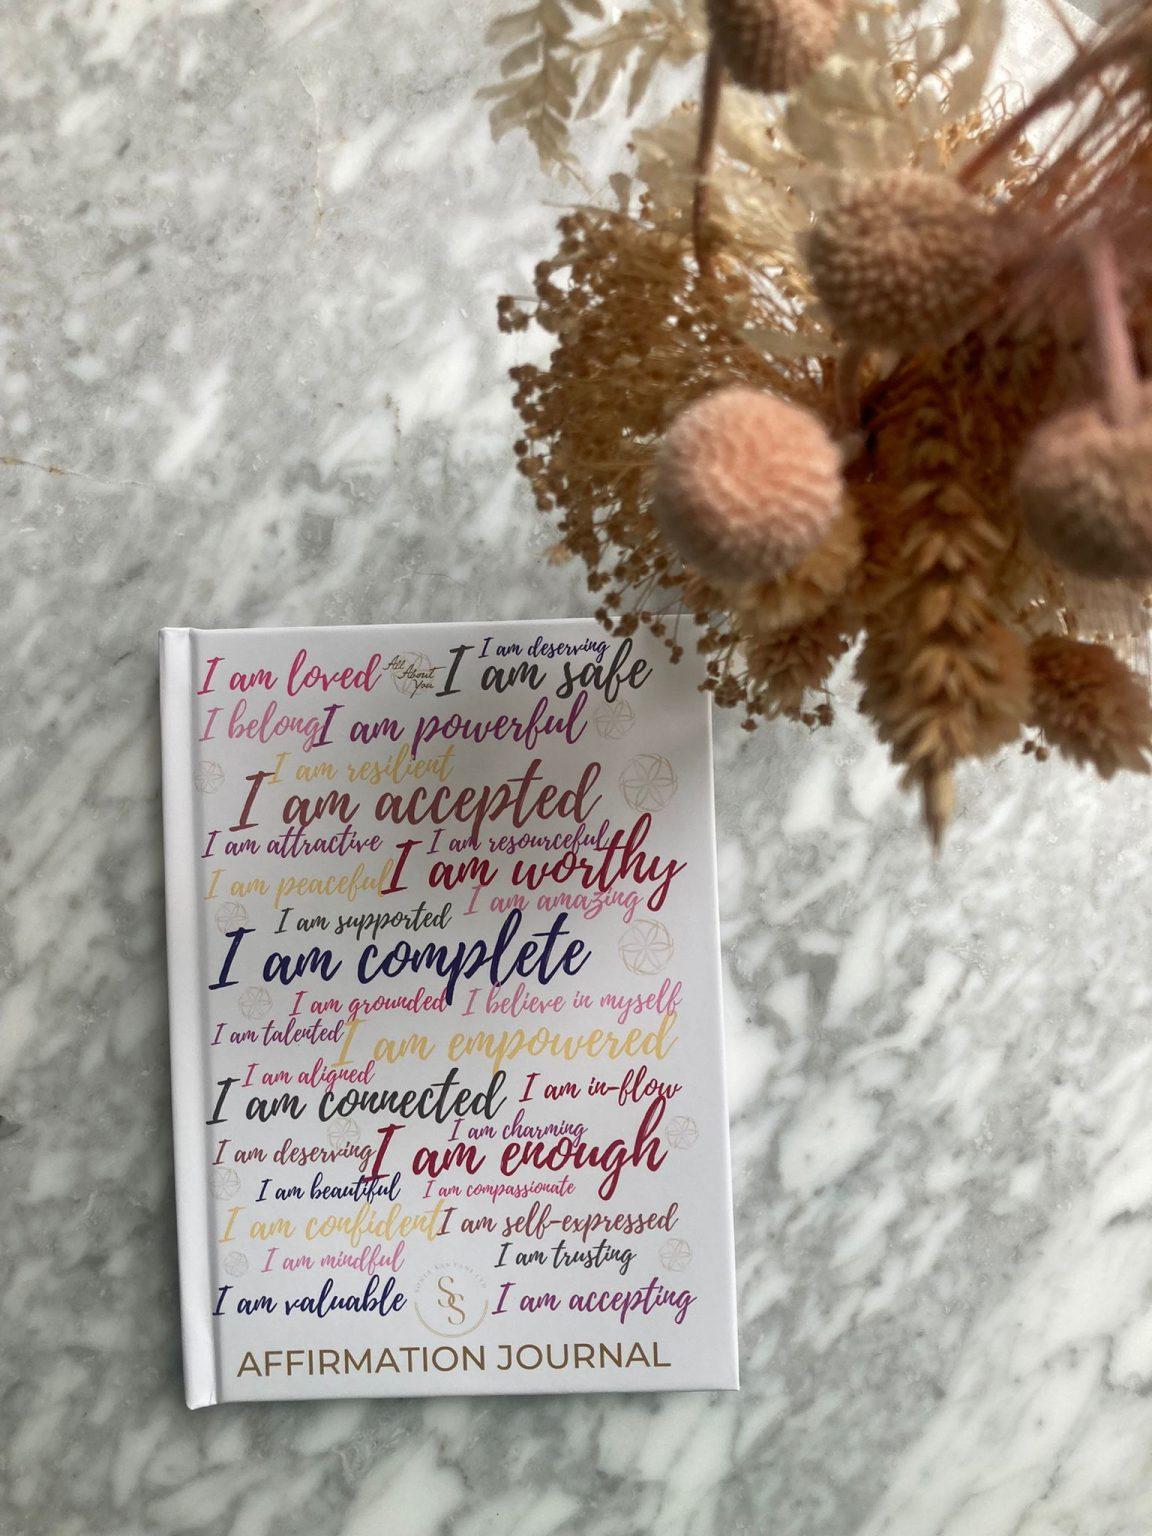 I am deserving
I am loved
All About You
I am safe
I belong
I am powerful
I am resilient
I am accepted
I am attractive
I am resourceful
I am peaceful
I am worthy
I am supported
I am amazing
I am complete
I am grounded
I believe in myself
I am talented
I am empowered
I am aligned
I am connected
I am in-flow
I am charming
I am deserving
I am enough
I am beautiful
I am compassionate
I am confident
I am self-expressed
I am mindful
I am trusting
I am valuable
SS
I am accepting
AFFIRMATION JOURNAL